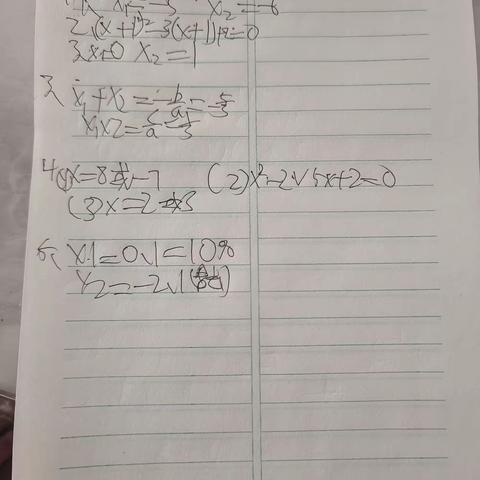 x₁=-3 x₂=-6
2、(x+1)²-3(x+1)+2=0
x=0 x₂=1
3、x₁+x₂=-b/a=-5/3
x₁x2=c/a
4(1)x=8或-7 (2)x²-2√5x+2=0
(3)x=2或3
x1=0.1=10%
x₂=-2.1(舍去)